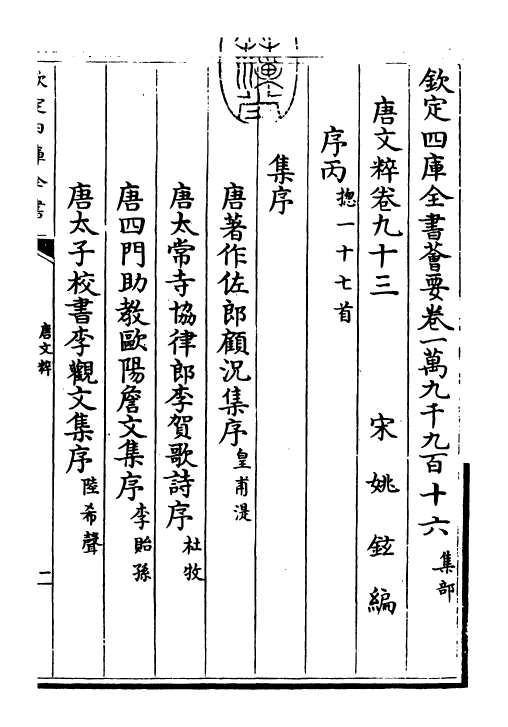 欽定四庫全書薈要卷一萬九千九百十六 集部
唐文粹卷九十三 宋 姚鉉編
序丙 摠一十七首
集序
唐著作佐郎顧況集序 皇甫湜
唐太常寺協律郎李賀歌詩序 杜牧
唐四門助教歐陽詹文集序 李貽孫
唐太子校書李觀文集序 陸希聲
欽定四庫全書
唐文粹
二